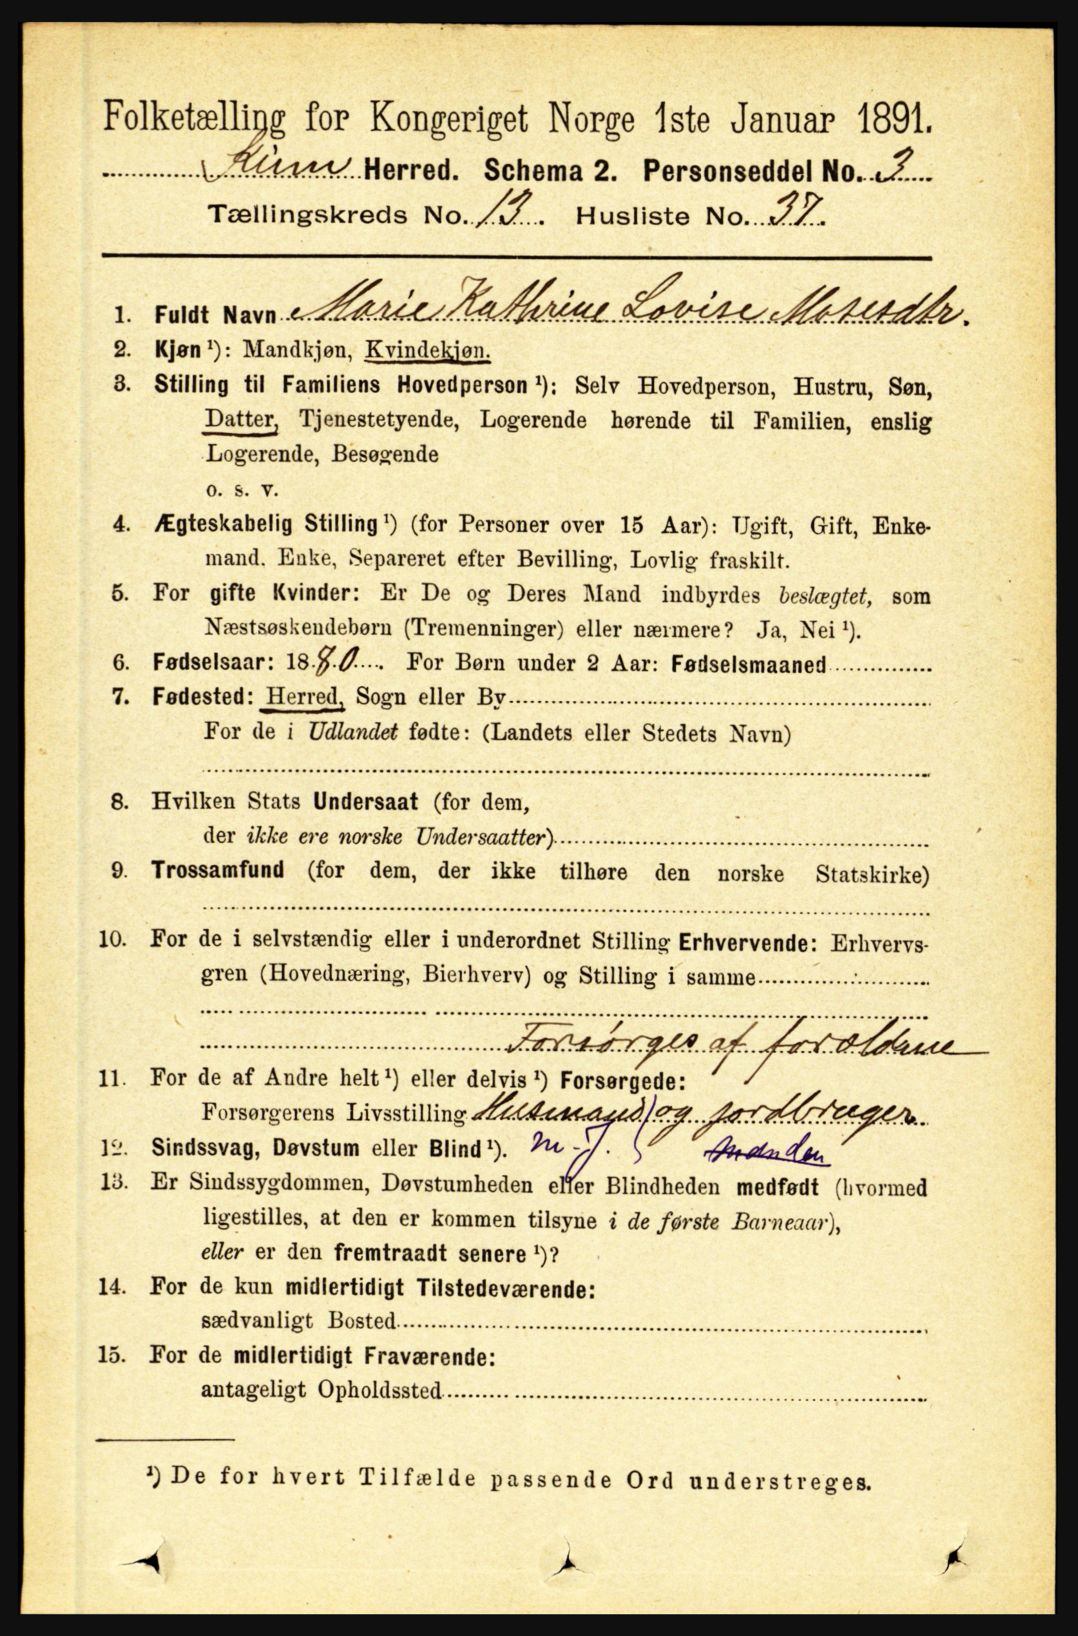 Folketælling for Kongeriget Norge 1ste Januar 1891.
Kinn Herred. Schema 2. Personseddel No. 3
Tællingskreds No. 13. Husliste No. 37.
1. Fuldt Navn Marie Kathrine Lovise Mosesdtr.
2. Kjøn ¹): Mandkjøn, Kvindekjøn.
3. Stilling til Familiens Hovedperson ¹): Selv Hovedperson, Hustru, Søn,
Datter, Tjenestetyende, Logerende hørende til Familien, enslig
Logerende, Besøgende
o. s. v.
4. Ægteskabelig Stilling ¹) (for Personer over 15 Aar): Ugift, Gift, Enke-
mand. Enke, Separeret efter Bevilling, Lovlig fraskilt.
5. For gifte Kvinder: Er De og Deres Mand indbyrdes beslægtet, som
Næstsøskendebørn (Tremenninger) eller nærmere? Ja, Nei ¹).
6. Fødselsaar: 1880. For Børn under 2 Aar: Fødselsmaaned
7. Fødested: Herred, Sogn eller By
For de i Udlandet fødte: (Landets eller Stedets Navn)
8. Hvilken Stats Undersaat (for dem,
der ikke ere norske Undersaatter)
9. Trossamfund (for dem, der ikke tilhøre den norske Statskirke)
10. For de i selvstændig eller i underordnet Stilling Erhvervende: Erhvervs-
gren (Hovednæring, Bierhverv) og Stilling i samme
Forsørges af forældrene
11. For de af Andre helt ¹) eller delvis ¹) Forsørgede:
Forsørgerens Livsstilling Husmand) og jordbruger
12. Sindssvag, Døvstum eller Blind ¹). m. J.
13. Er Sindssygdommen, Døvstumheden eller Blindheden medfødt (hvormed
ligestilles, at den er kommen tilsyne i de første Barneaar),
eller er den fremtraadt senere ¹)?
14. For de kun midlertidigt Tilstedeværende:
sædvanligt Bosted
15. For de midlertidigt Fraværende:
antageligt Opholdssted
¹) De for hvert Tilfælde passende Ord understreges.